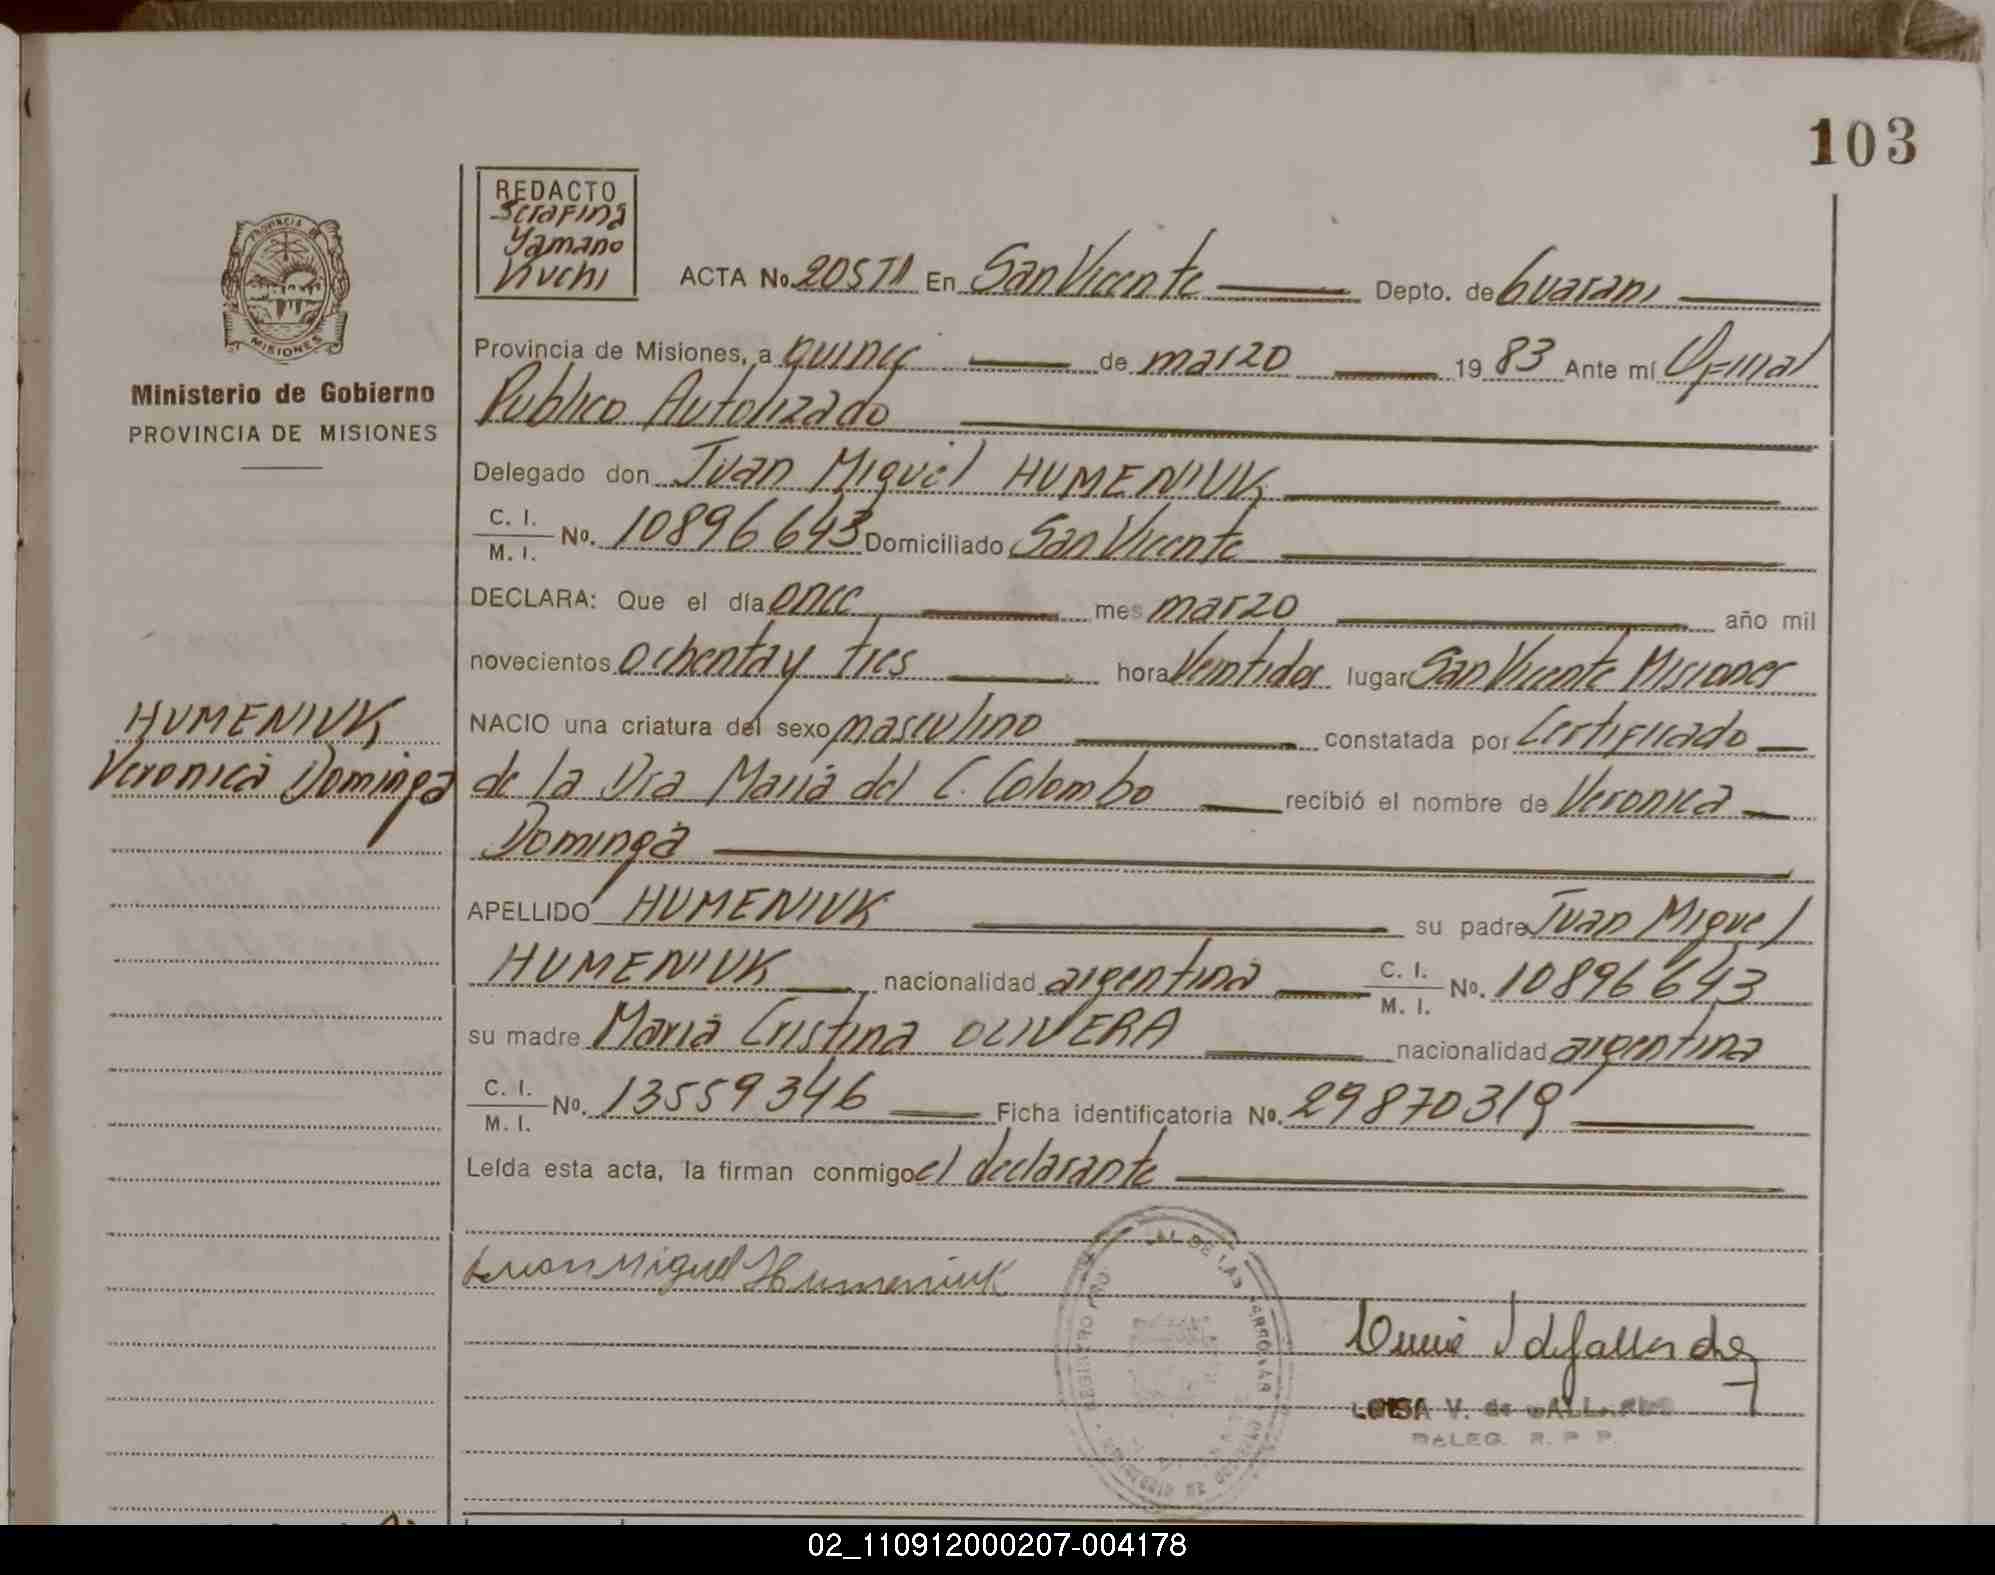 103
REDACTO
Serafina
Yamano
Kuchi
PROVINCIA DE
MISIONES
Ministerio de Gobierno
PROVINCIA DE MISIONES
ACTA No. 205 T1 En San Vicente Depto. de Guarani
Provincia de Misiones, a quince de marzo 19 83 Ante mí Oficial
Publico Autorizado
Delegado don Juan Miguel HUMENIUK
C. I.
M. I. No. 10896643 Domiciliado San Vicente
DECLARA: Que el día once mes marzo año mil
novecientos ochenta y tres hora Veintidos lugar San Vicente Misiones
NACIO una criatura del sexo masculino constatada por Certificado
HUMENIUK
Veronica Dominga
de la Dra Maria del C. Colombo recibió el nombre de Veronica
Dominga
APELLIDO HUMENIUK su padre Juan Miguel
HUMENIUK nacionalidad argentina C. I. M. I. No. 10896643
su madre Maria Cristina OLIVERA nacionalidad argentina
C. I.
M. I. No. 13559346 Ficha identificatoria No. 29870319
Leída esta acta, la firman conmigo el declarante
Juan Miguel Humeniuk
LUISA V. de GALLARDO
DELEG. R. P. P.
02_110912000207-004178